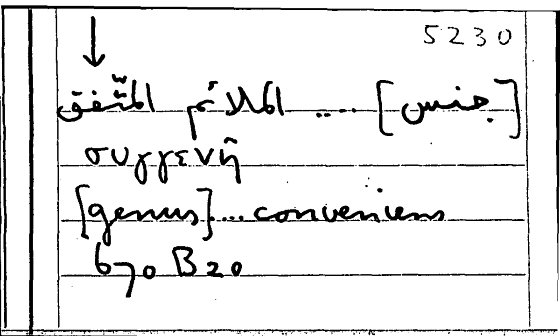 5230
[جنس] .... الملائم المتّفق
συγγενῆ
[genus]...conveniens
670 B20